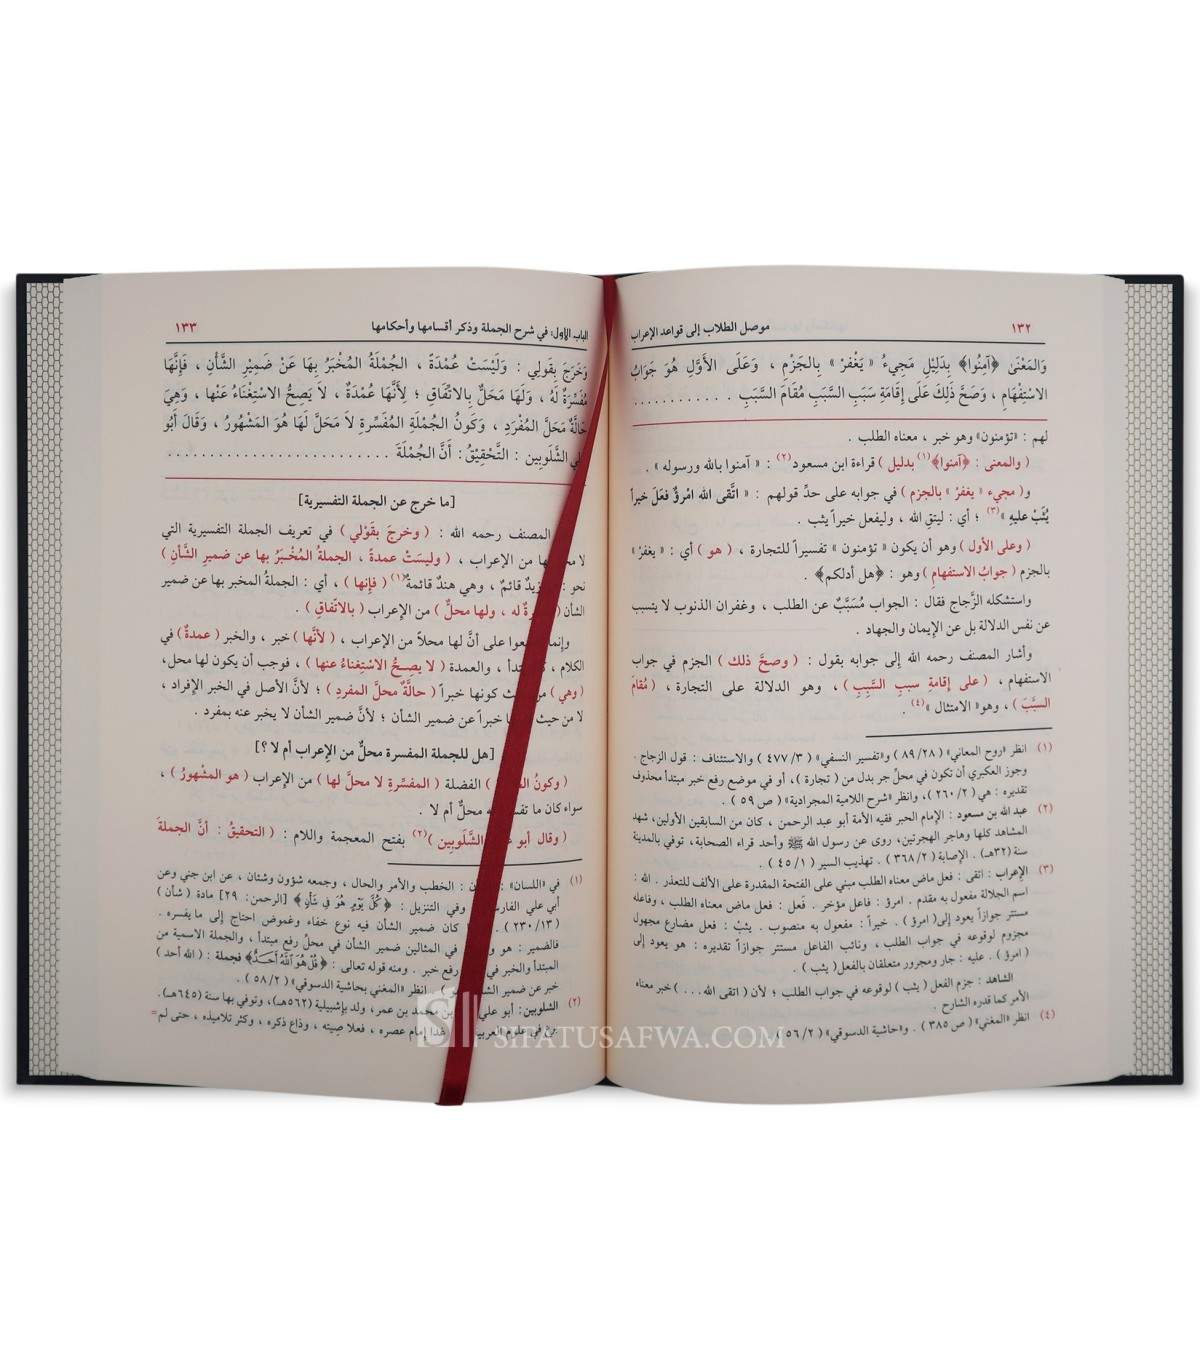 ١٣٢
موصل الطلاب إلى قواعد الإعراب
وَالمَعْنَىٰ ﴿آمِنُوا﴾ بِدَلِيْلِ مَجِيءُ « يَغْفِرْ » بِالجَزْمِ ، وَعَلَى الأَوَّلِ هُوَ جَوَابُ
الاسْتِفْهَامِ ، وَصَحَّ ذَلِكَ عَلَى إِقَامَةِ سَبَبِ السَّبَبِ مُقَامَ السَّبَبِ . . . . . . . . . . . .
لهم : «تؤمنون» وهو خبر ، معناه الطلب .
( والمعنى : ﴿آمنوا﴾(١) بدليل ) قراءة ابن مسعود(٢) : « آمنوا بالله ورسوله » .
و( مجيء « يغفرْ » بالجزم ) في جوابه على حدِّ قولهم : « اتَّقى الله امْرؤٌ فعَلَ خيراً
يُثَبْ عليهِ »(٣) ؛ أي : ليتقِ الله ، وليفعل خيراً يثب .
( وعلى الأول ) وهو أن يكون « تؤمنون » تفسيراً للتجارة ، ( هو ) أي : « يغفرْ »
بالجزم ( جوابُ الاستفهامِ ) وهو : ﴿هل أدلكم﴾ .
واستشكله الزَّجاج فقال : الجواب مُسَبَّبٌ عن الطلب ، وغفران الذنوب لا يتسبب
عن نفس الدلالة بل عن الإيمان والجهاد .
وأشار المصنف رحمه الله إلى جوابه بقول : ( وصحَّ ذلك ) الجزم في جواب
الاستفهام ، ( على إقامةِ سببِ السَّبِبِ ) ، وهو الدلالة على التجارة ، ( مُقامَ
السَّبَبَ ) ، وهو« الامتثال »(٤) .
(١) انظر «روح المعاني» ( ٨٩/٢٨ ) و«تفسير النسفي» ( ٤٧٧/٣ ) والاستئناف : قول الزجاج .
وجوز العكبري أن تكون في محلِّ جر بدل من ( تجارة ) ، أو في موضع رفع خبر مبتدأ محذوف
تقديره : هي ( ٢٦٠/٢ ) ، وانظر «شرح اللامية المجرادية» ( ص ٥٩ ) .
(٢) عبد الله بن مسعود : الإمام الحبر فقيه الأمة أبو عبد الرحمن ، كان من السابقين الأولين، شهد
المشاهد كلها وهاجر الهجرتين، روى عن رسول الله ﷺ وأحد قراء الصحابة، توفي بالمدينة
سنة (٣٢هـ) . الإصابة ( ٣٦٨/٢ ) . تهذيب السير ( ٤٥/١ ) .
(٣) الإعراب : اتقى : فعل ماض معناه الطلب مبني على الفتحة المقدرة على الألف للتعذر . الله :
اسم الجلالة مفعول به مقدم . امرؤ : فاعل مؤخر . فَعل : فعل ماض معناه الطلب ، وفاعله
مستتر جوازاً يعود إلى( امرؤ ) . خيراً : مفعول به منصوب . يثبْ : فعل مضارع مجهول
مجزوم لوقوعه في جواب الطلب ، ونائب الفاعل مستتر جوازاً تقديره : هو يعود إلى
( امرؤ ) . عليه : جار ومجرور متعلقان بالفعل( يثب ) .
الشاهد : جزم الفعل ( يثب ) لوقوعه في جواب الطلب ؛ لأن ( اتقى الله . . . ) خبر معناه
الأمر كما قدره الشارح .
(٤) انظر «المغني» ( ص ٣٨٥ ) . و«حاشية الدسوقي» ( ٥٦/٢ ) .
الباب الأول: في شرح الجملة وذكر أقسامها وأحكامها
١٣٣
وَخَرَجَ بِقَولِي : وَلَيْسَتْ عُمْدَةً ، الجُمْلَةُ المُخْبَرُ بِهَا عَنْ ضَمِيْرِ الشَّأْنِ ، فَإِنَّهَا
مُفَسِّرَةٌ لَهُ ، وَلَهَا مَحَلٌّ بِالاتِّفَاقِ ؛ لِأَنَّهَا عُمْدَةٌ ، لاَ يَصِحُّ الاسْتِغْنَاءُ عَنْهَا ، وَهِيَ
حَالَّةٌ مَحَلَّ المُفْرَدِ ، وَكَونُ الجُمْلَةِ المُفَسِّرةِ لاَ مَحَلَّ لَهَا هُوَ المَشْهُورُ ، وَقَالَ أَبُو
الشَّلَوبِين : التَّحْقِيْقُ : أَنَّ الجُمْلَةَ . . . . . . . . . . . . . . . . . . . . . . . .
[ما خرج عن الجملة التفسيرية]
المصنف رحمه الله : ( وخرجَ بقَوْلي ) في تعريف الجملة التفسيرية التي
لا من الإعراب ، ( وليسَتْ عمدةً ، الجملةُ المُخْبَرُ بها عن ضمير الشَّأنِ )
نحو : زيدٌ قائمٌ ، وهي هندٌ قائمةٌ(١) ( فإنها ) ، أي : الجملةُ المخبر بها عن ضمير
الشأن له ، ولها محلٌّ ) من الإعراب ( بالاتّفاقِ ) .
وإنما على أنَّ لها محلاً من الإعراب ، ( لأنَّها ) خبر ، والخبر ( عمدةٌ ) في
الكلام ، والعمدة ( لا يصِحُّ الاسْتِغناءُ عنها ) ، فوجب أن يكون لها محل،
( وهي ) كونها خبراً ( حالَّةٌ محلَّ المفردِ ) ؛ لأنَّ الأصل في الخبر الإفراد ،
لا من حيث خبراً عن ضمير الشأن ؛ لأنَّ ضمير الشأن لا يخبر عنه بمفرد .
[هل للجملة المفسرة محلٌّ من الإعراب أم لا ؟]
( وكونُ ) الفضلة ( المفسِّرةِ لا محلَّ لها ) من الإعراب ( هو المشهورُ ) ،
سواء كان ما محلٌّ أم لا .
( وقال أبو الشَّلَوبِين )(٢) بفتح المعجمة واللام : ( التحقيقُ : أنَّ الجملةَ
(١) في «اللسان» : الخطب والأمر والحال ، وجمعه شؤون وشئان ، عن ابن جني وعن
أبي علي الفارسي وفي التنزيل : ﴿كُلَّ يَوْمٍ هُوَ فِي شَأْنٍ﴾ [الرحمن: ٢٩] مادة ( شأن )
( ٢٣٠/١٣ ) . كان ضمير الشأن فيه نوع خفاء وغموض احتاج إلى ما يفسره .
فالضمير : هو في المثالين ضمير الشأن في محلِّ رفع مبتدأ ، والجملة الاسمية من
المبتدأ والخبر في رفع خبر . ومنه قوله تعالى : ﴿قُلْ هُوَ ٱللَّهُ أَحَدٌ﴾ فجملة : ( الله أحد )
خبر عن ضمير انظر «المغني بحاشية الدسوقي» ( ٥٨/٢ ) .
(٢) الشلوبين: أبو علي بن محمد بن عمر، ولد بإشبيلية (٥٦٢هـ)، وتوفي بها سنة (٦٤٥هـ).
برع في علوم العربية إمام عصره ، فعلا صِيته ، وذاع ذكره ، وكثر تلاميذه ، حتى لم=
SIFATUSAFWA.COM